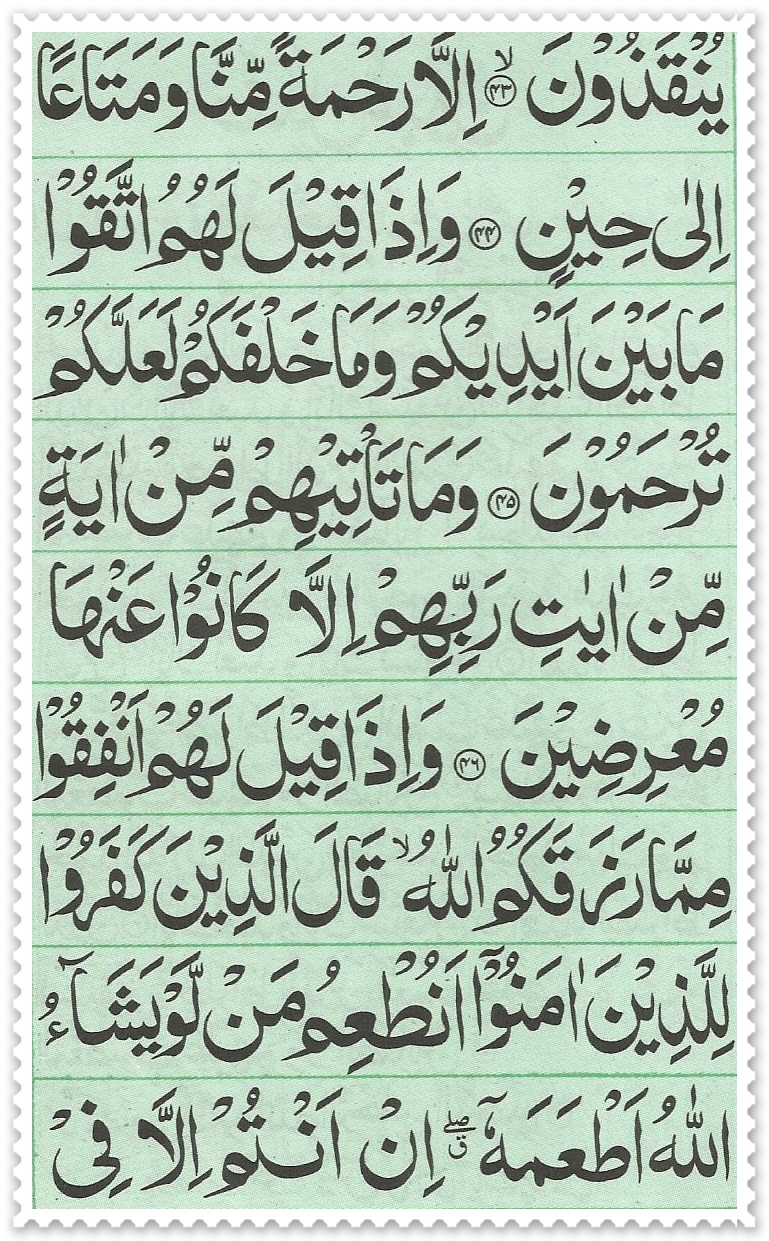 يُنْقَذُوْنَ ۙ﴿۴۳﴾ اِلَّا رَحْمَةً مِّنَّا وَمَتَاعًا
اِلٰى حِيْنٍ ﴿۴۴﴾ وَاِذَا قِيْلَ لَهُمُ اتَّقُوْا
مَا بَيْنَ اَيْدِيْكُمْ وَمَا خَلْفَكُمْ لَعَلَّكُمْ
تُرْحَمُوْنَ ﴿۴۵﴾ وَمَا تَاْتِيْهِمْ مِّنْ اٰيَةٍ
مِّنْ اٰيٰتِ رَبِّهِمْ اِلَّا كَانُوْا عَنْهَا
مُعْرِضِيْنَ ﴿۴۶﴾ وَاِذَا قِيْلَ لَهُمْ اَنْفِقُوْا
مِمَّا رَزَقَكُمُ اللّٰهُ ۙ قَالَ الَّذِيْنَ كَفَرُوْا
لِلَّذِيْنَ اٰمَنُوْۤا اَنُطْعِمُ مَنْ لَّوْ يَشَآءُ
اللّٰهُ اَطْعَمَهٗۤ ۖق اِنْ اَنْتُمْ اِلَّا فِىْ